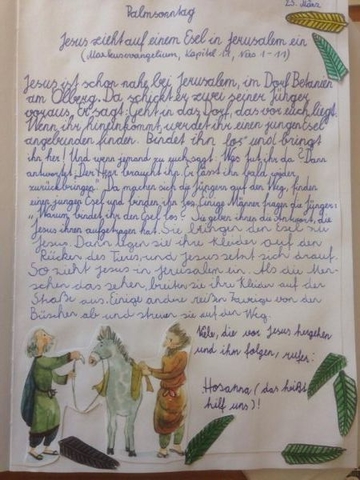 25. März
Palmsonntag
Jesus zieht auf einem Esel in Jerusalem ein
(Markusevangelium, Kapitel 11, Vers 1-11)
Jesus ist schon nahe bei Jerusalem, im Dorf Betanien
am Ölberg. Da schickt er zwei seiner Jünger
voraus. Er sagt: Geht in das Dorf, das vor euch liegt.
Wenn ihr hineinkommt, werdet ihr einen jungen Esel
angebunden finden. Bindet ihn los und bringt
ihn her! Und wenn jemand zu euch sagt: Was tut ihr da? Dann
antwortet: Der Herr braucht ihn. Er lässt ihn bald wieder
zurückbringen. Da machen sich die Jünger auf den Weg, finden
einen jungen Esel und binden ihn los. Einige Männer fragen die Jünger:
„Warum bindet ihr den Esel los?" Sie geben ihnen die Antwort, die
Jesus ihnen aufgetragen hat. Sie bringen den Esel zu
Jesus. Dann legen sie ihre Kleider auf den
Rücken des Tieres, und Jesus setzt sich drauf.
So zieht Jesus in Jerusalem ein. Als die Men-
schen das sehen, breiten sie ihre Kleider auf der
Straße aus. Einige andere reißen Zweige von den
Büschen ab und streuen sie auf den Weg.
Viele, die vor Jesus hergehen
und ihm folgen, rufen:
Hosanna (das heißt
hilf uns)!